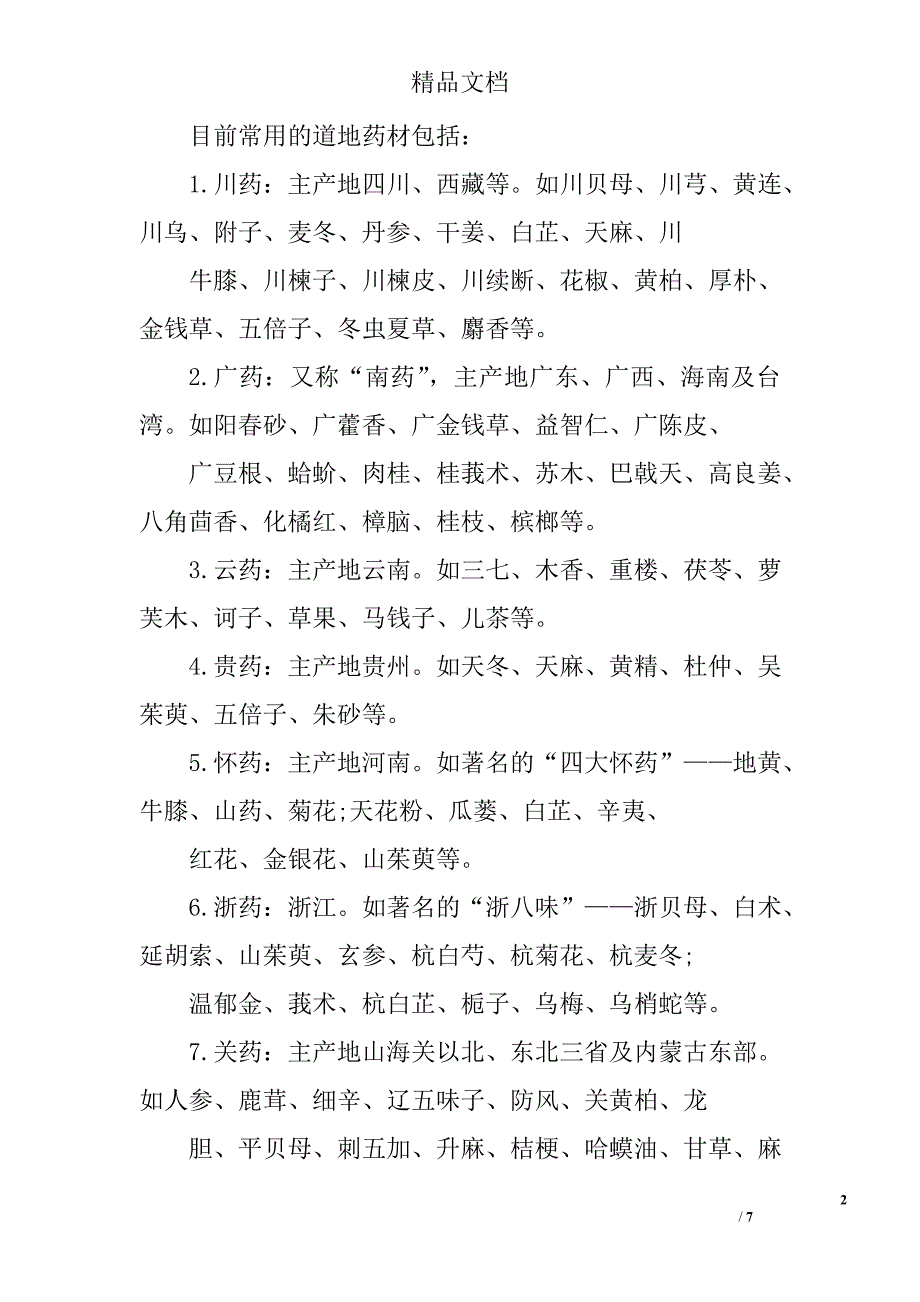 精品文档
目前常用的道地药材包括：
1.川药：主产地四川、西藏等。如川贝母、川芎、黄连、
川乌、附子、麦冬、丹参、干姜、白芷、天麻、川
牛膝、川楝子、川楝皮、川续断、花椒、黄柏、厚朴、
金钱草、五倍子、冬虫夏草、麝香等。
2.广药：又称“南药”，主产地广东、广西、海南及台
湾。如阳春砂、广藿香、广金钱草、益智仁、广陈皮、
广豆根、蛤蚧、肉桂、桂莪术、苏木、巴戟天、高良姜、
八角茴香、化橘红、樟脑、桂枝、槟榔等。
3.云药：主产地云南。如三七、木香、重楼、茯苓、萝
芙木、诃子、草果、马钱子、儿茶等。
4.贵药：主产地贵州。如天冬、天麻、黄精、杜仲、吴
茱萸、五倍子、朱砂等。
5.怀药：主产地河南。如著名的“四大怀药”——地黄、
牛膝、山药、菊花;天花粉、瓜蒌、白芷、辛夷、
红花、金银花、山茱萸等。
6.浙药：浙江。如著名的“浙八味”——浙贝母、白术、
延胡索、山茱萸、玄参、杭白芍、杭菊花、杭麦冬;
温郁金、莪术、杭白芷、栀子、乌梅、乌梢蛇等。
7.关药：主产地山海关以北、东北三省及内蒙古东部。
如人参、鹿茸、细辛、辽五味子、防风、关黄柏、龙
胆、平贝母、刺五加、升麻、桔梗、哈蟆油、甘草、麻
2
/ 7